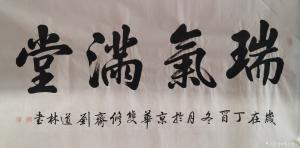 瑞氣滿堂
歲在丁酉冬月於京華雙脩齋劉道林書